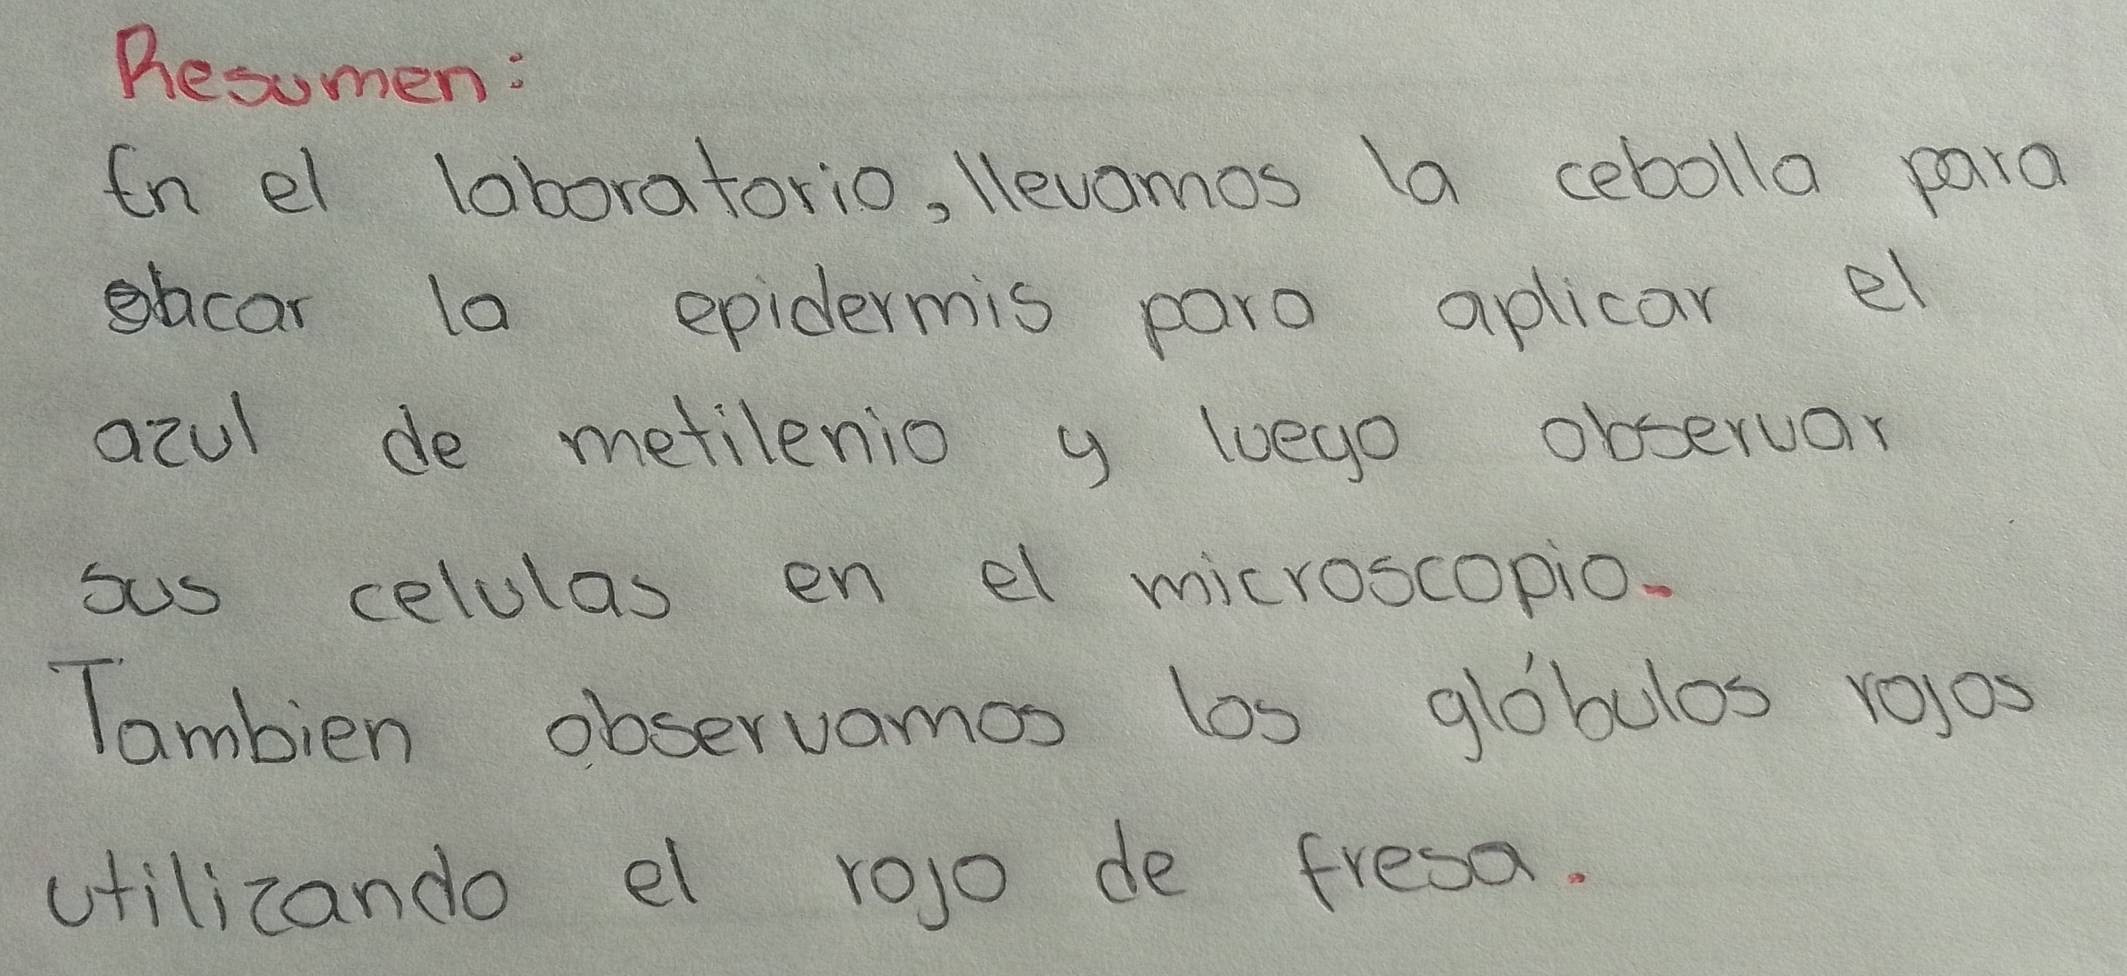 Resumen:
En el laboratorio, llevamos la cebolla para
la epidermis para aplicar el
azul de metilenio y luego observar
sus celulas en el microscopio.
Tambien observamos los glóbulos rojos
utilizando el rojo de fresa.